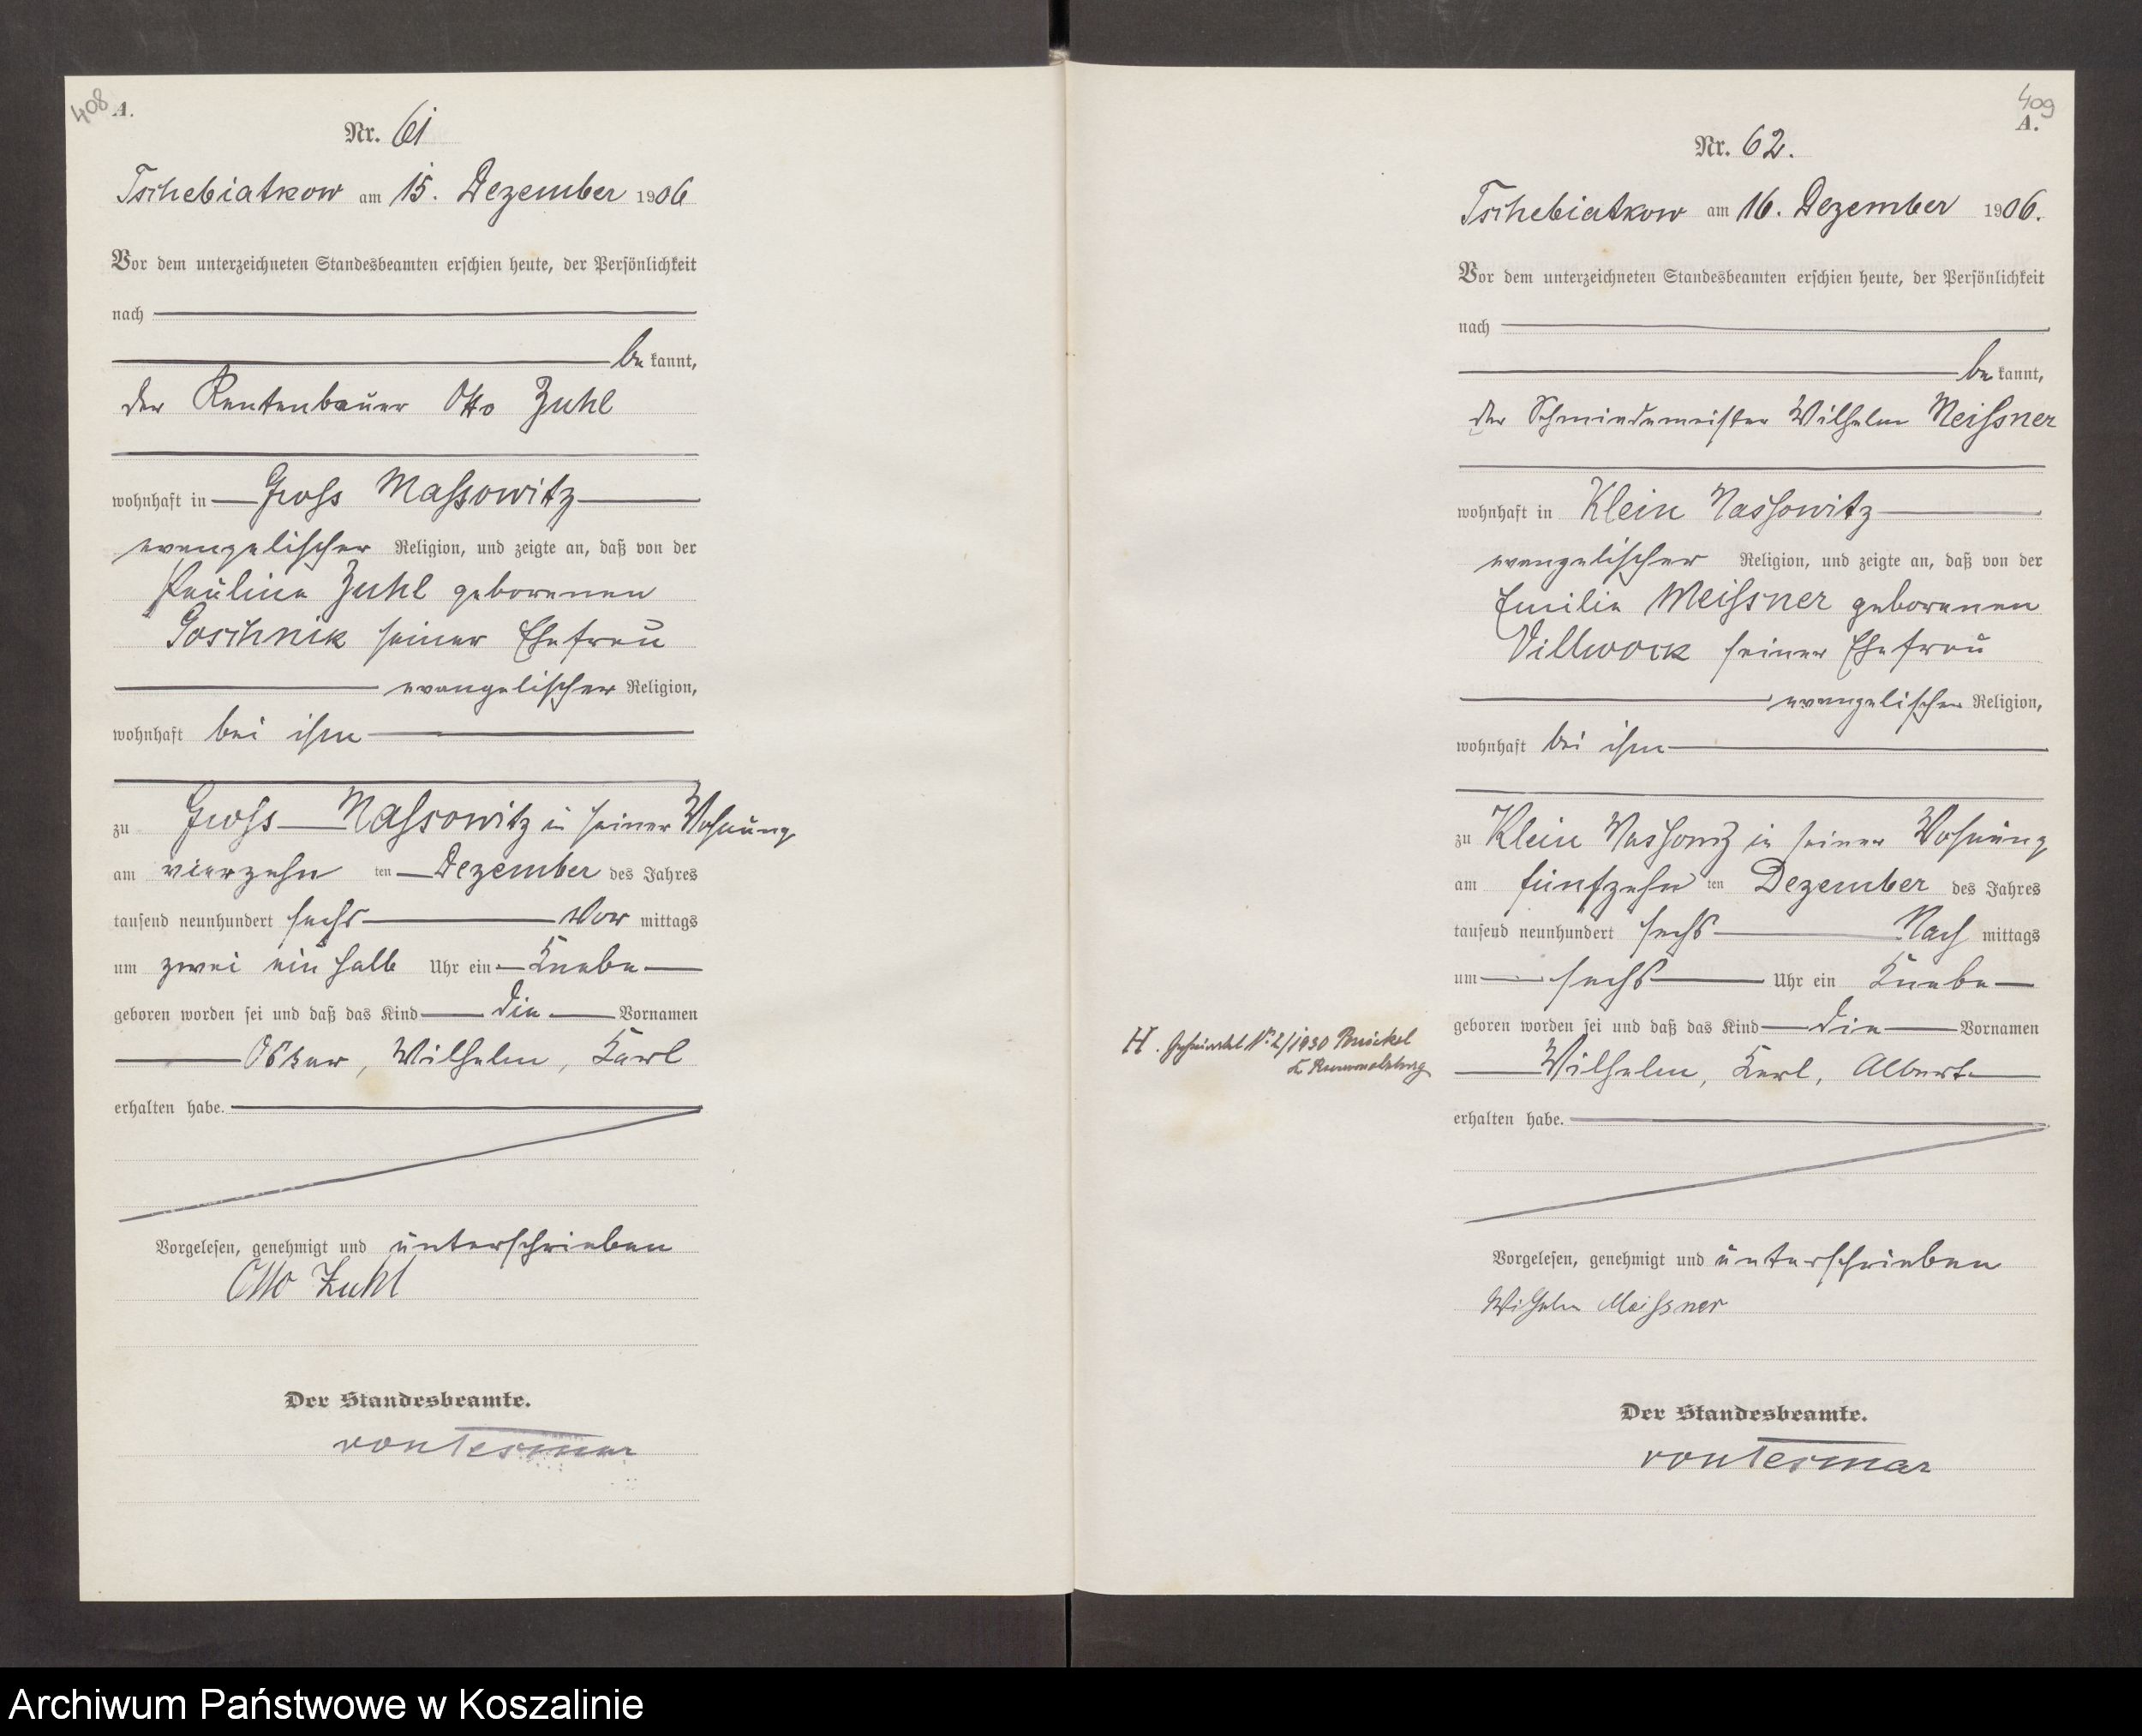 408 A.
Nr. 61
Tschebiatkow am 15. Dezember 1906
Vor dem unterzeichneten Standesbeamten erschien heute, der Persönlichkeit
nach
be kannt,
der Rentenbauer Otto Zuhl
wohnhaft in Gross Massowitz
evangelischer Religion, und zeigte an, daß von der
Pauline Zuhl geborenen
Goschnik seiner Ehefrau
evangelischer Religion,
wohnhaft bei ihm
zu Gross Massowitz in seiner Wohnung
am vierzehn ten Dezember des Jahres
tausend neunhundert sechs Vor mittags
um zwei ein halb Uhr ein Knabe
geboren worden sei und daß das Kind die Vornamen
Oskar, Wilhelm, Karl
erhalten habe.
Vorgelesen, genehmigt und unterschrieben
Otto Zuhl
Der Standesbeamte.
von Tesmar
409
A.
Nr. 62.
Tschebiatkow am 16. Dezember 1906.
Vor dem unterzeichneten Standesbeamten erschien heute, der Persönlichkeit
nach
be kannt,
der Schmiedemeister Wilhelm Meissner
wohnhaft in Klein Massowitz
evangelischer Religion, und zeigte an, daß von der
Emilie Meissner geborenen
Villwock seiner Ehefrau
evangelischer Religion,
wohnhaft bei ihm
zu Klein Massowitz in seiner Wohnung
am fünfzehn ten Dezember des Jahres
tausend neunhundert sechs Nach mittags
um sechs Uhr ein Knabe
geboren worden sei und daß das Kind die Vornamen
Wilhelm, Karl, Albert
erhalten habe.
H. Geheiratet Nr. 2/1930
Kr. Rummelsburg
Vorgelesen, genehmigt und unterschrieben
Wilhelm Meissner
Der Standesbeamte.
von Tesmar
Archiwum Państwowe w Koszalinie